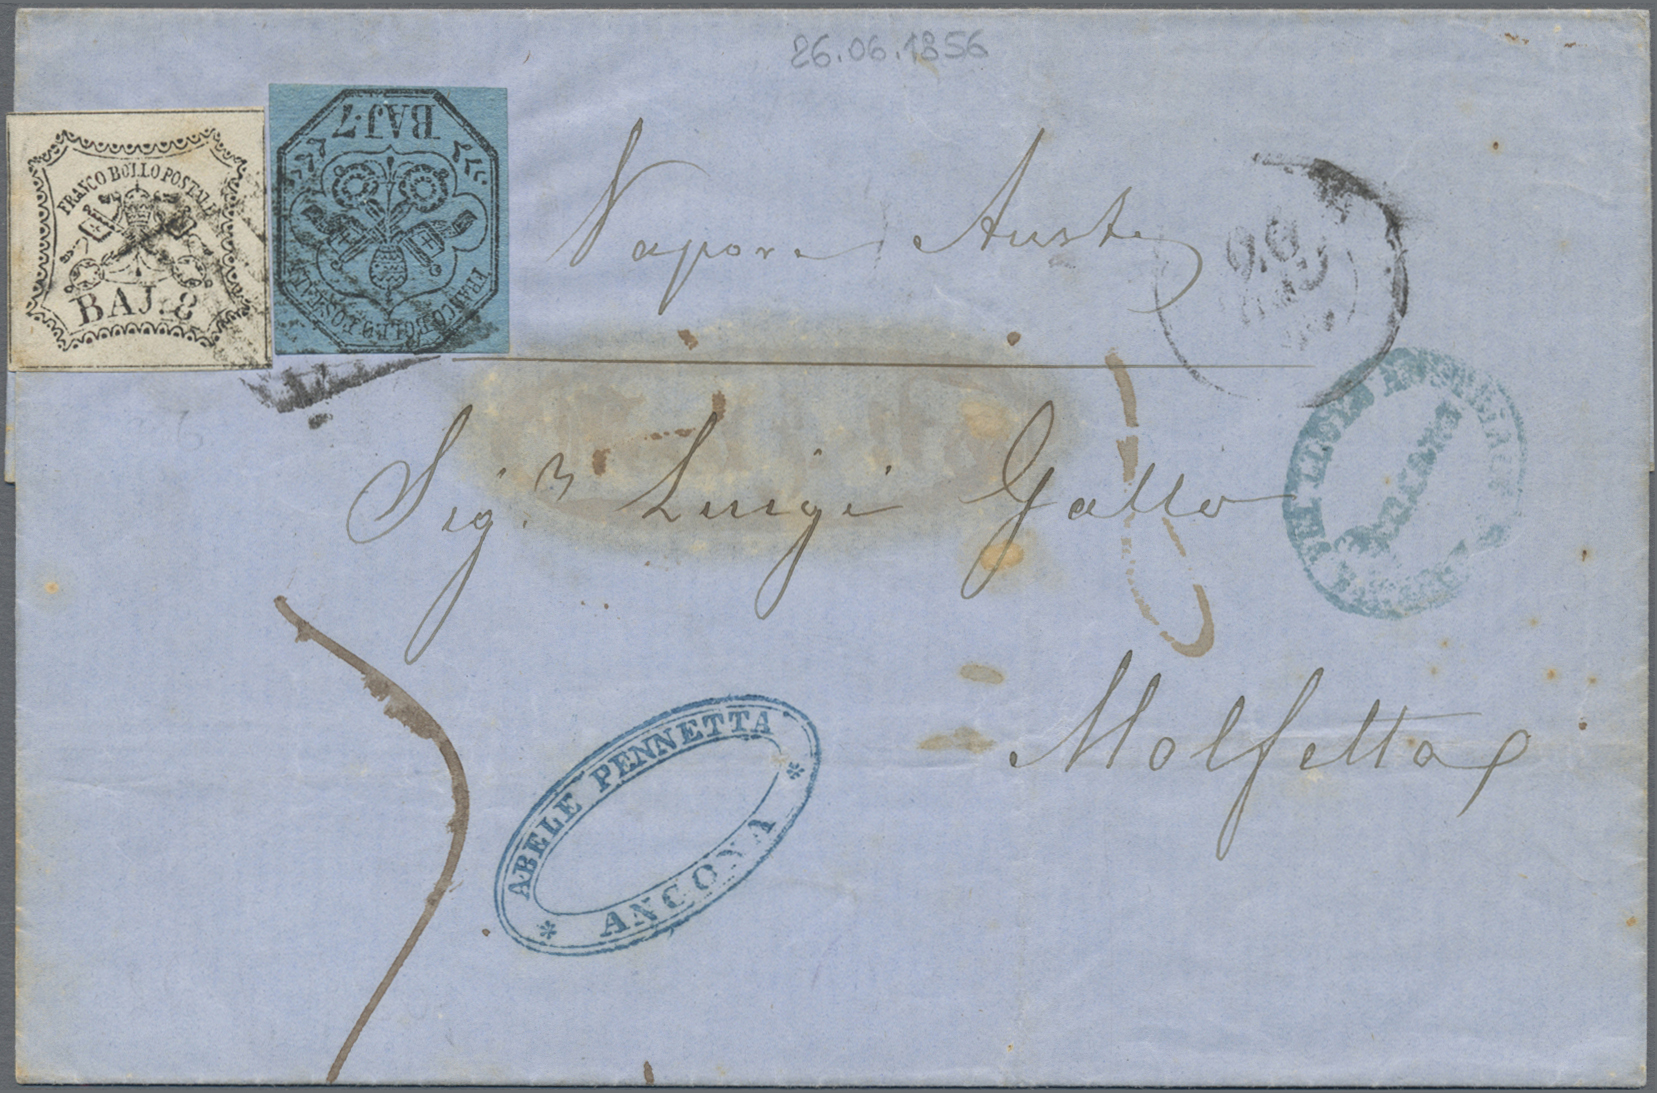 26.06.1856
FRANCO BOLLO POSTALE
BAJ. 8
BAJ. 7
FRANCO BOLLO POSTALE
Vapore Aust
Sig.r Luigi Gallo
Molfetta
ABELE PENNETTA
ANCONA